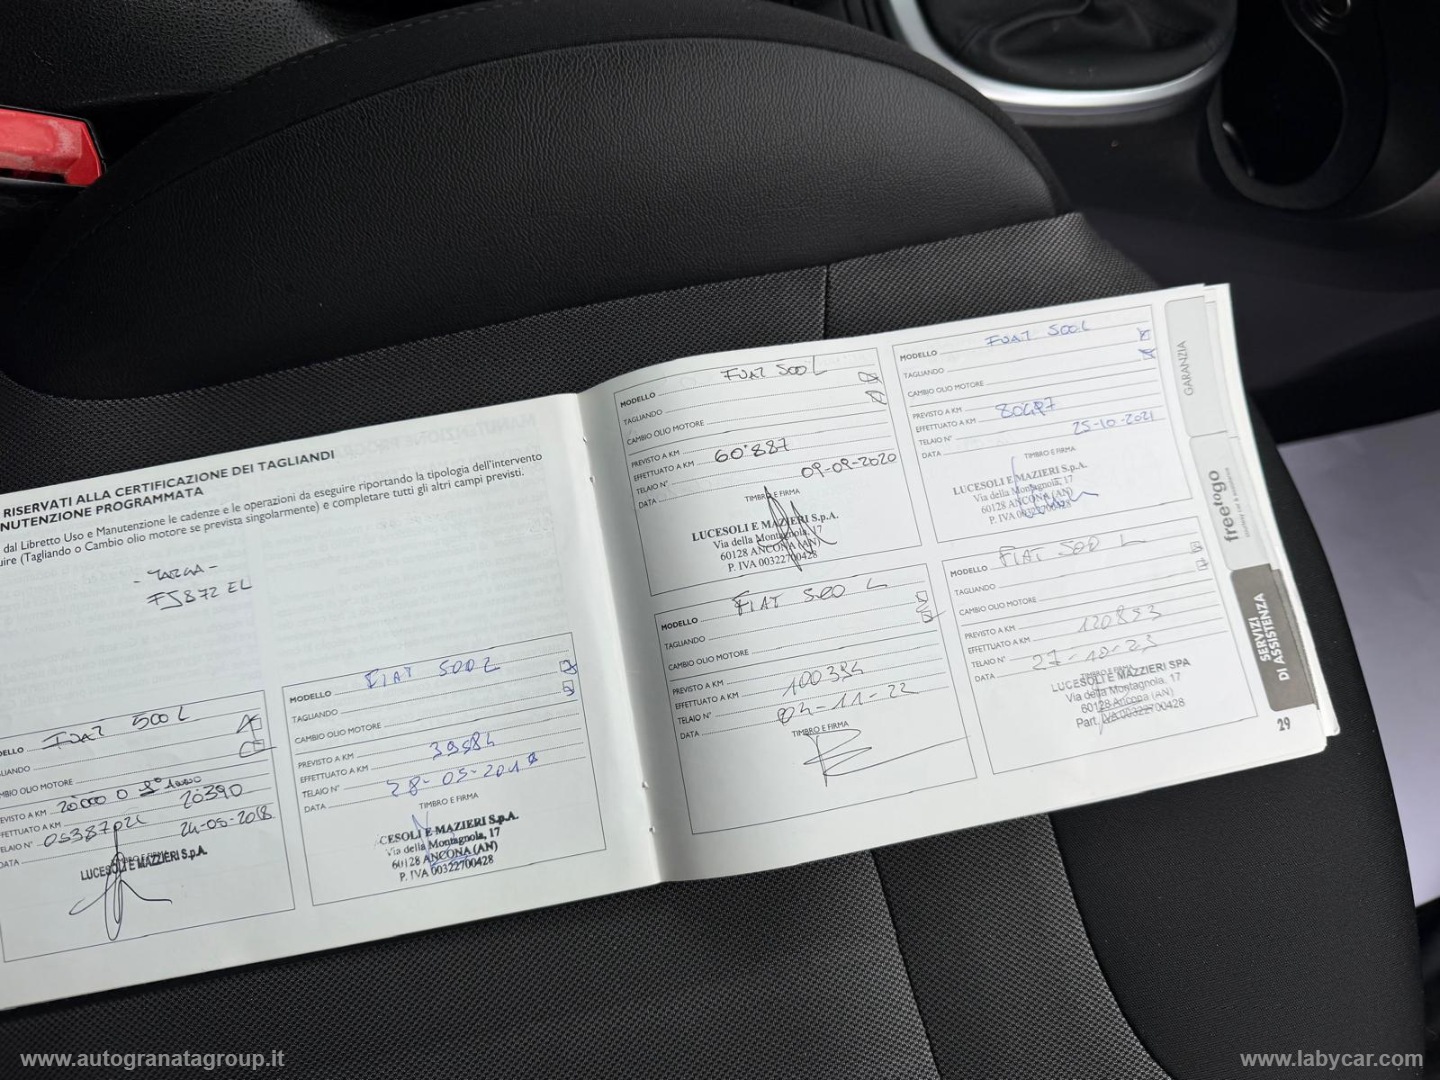 RISERVATI ALLA CERTIFICAZIONE DEI TAGLIANDI
NUTENZIONE PROGRAMMATA
dal Libretto Uso e Manutenzione le cadenze e le operazioni da eseguire riportando la tipologia dell'intervento
uire (Tagliando o Cambio olio motore se prevista singolarmente) e completare tutti gli altri campi previsti.
- TARGA -
FJ872EL
DELLO FIAT 500L
LIANDO
MBIO OLIO MOTORE
EVISTO A KM 20000 O 1° ANNO
FETTUATO A KM 20390
ELAIO N°
DATA 24-05-2018
LUCESOLI E MAZZIERI S.p.A.
MODELLO FIAT 500L
TAGLIANDO
CAMBIO OLIO MOTORE
PREVISTO A KM
EFFETTUATO A KM 39584
TELAIO N°
DATA 28-05-2019
TIMBRO E FIRMA
CESOLI E MAZZIERI S.p.A.
Via della Montagnola, 17
60128 ANCONA (AN)
P. IVA 00322700428
MODELLO FIAT 500L
TAGLIANDO
CAMBIO OLIO MOTORE
PREVISTO A KM
EFFETTUATO A KM 60'887
TELAIO N°
DATA 09-09-2020
TIMBRO E FIRMA
LUCESOLI E MAZZIERI S.p.A.
Via della Montagnola, 17
60128 ANCONA (AN)
P. IVA 00322700428
MODELLO FIAT 500L
TAGLIANDO
CAMBIO OLIO MOTORE
PREVISTO A KM
EFFETTUATO A KM
TELAIO N°
DATA 25-10-2021
TIMBRO E FIRMA
LUCESOLI E MAZZIERI S.p.A.
Via della Montagnola, 17
60128 ANCONA (AN)
P. IVA 00322700428
MODELLO FIAT 500 L
TAGLIANDO
CAMBIO OLIO MOTORE
PREVISTO A KM
EFFETTUATO A KM 100394
TELAIO N°
DATA 04-11-22
TIMBRO E FIRMA
MODELLO FIAT 500 L
TAGLIANDO
CAMBIO OLIO MOTORE
PREVISTO A KM
EFFETTUATO A KM 120853
TELAIO N°
DATA 27-10-23
TIMBRO E FIRMA
LUCESOLI E MAZZIERI SPA
Via della Montagnola, 17
60128 Ancona (AN)
Part. IVA 00322700428
GARANZIA
freetogo
SERVIZI
DI ASSISTENZA
29
www.autogranatagroup.it
www.labycar.com